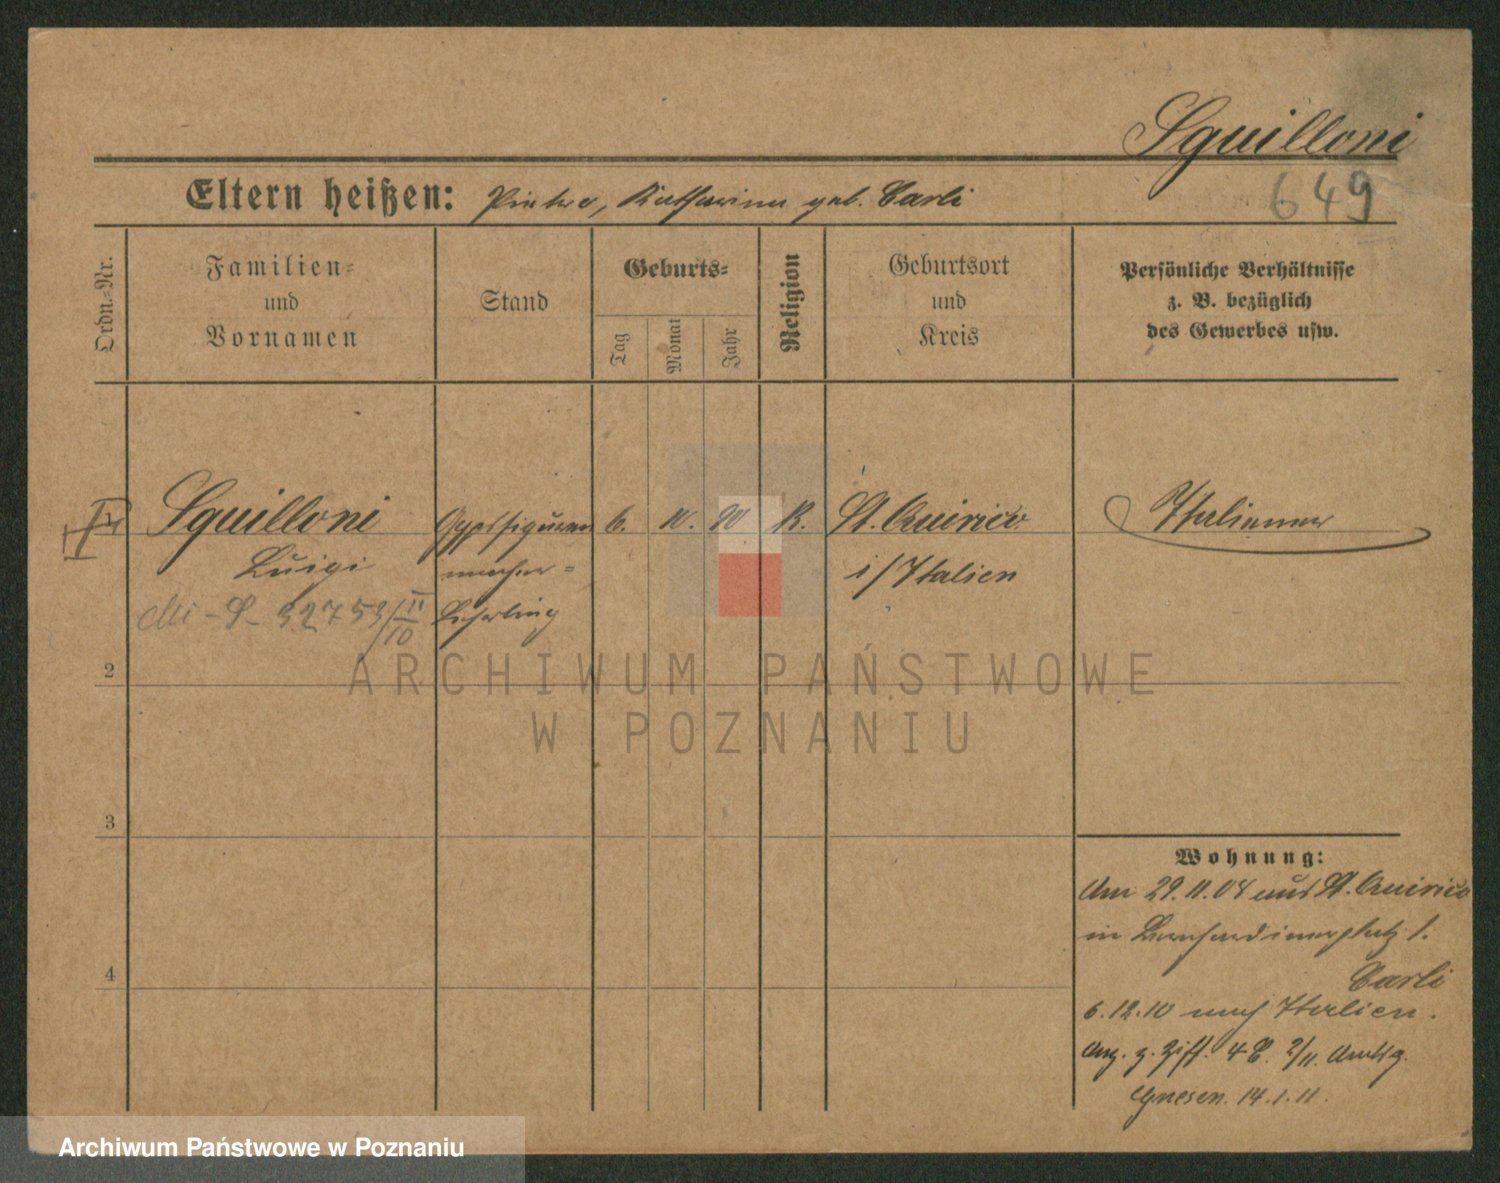 Squilloni
Eltern heißen: Pietro, Katharina geb. Carli
649
Ordn.-Nr.
Familien-
und
Vornamen
Stand
Geburts-
Tag
Monat
Jahr
Religion
Geburtsort
und
Kreis
Persönliche Verhältnisse
z. B. bezüglich
des Gewerbes usw.
1 Squilloni Gypsfiguren 6. 90 K. St. Quirico Italiener
Luigi macher- i/Italien
Mi - S 32753/II/10 Lehrling
2
3
4
Wohnung:
Am 29.11.08 aus St. Quirico
in Bernhardinerplatz 1.
Carli
6.12.10 nach Italien.
Anz. z. Ziff. 4
Gnesen. 14.1.11.
ARCHIWUM PAŃSTWOWE
W POZNANIU
Archiwum Państwowe w Poznaniu